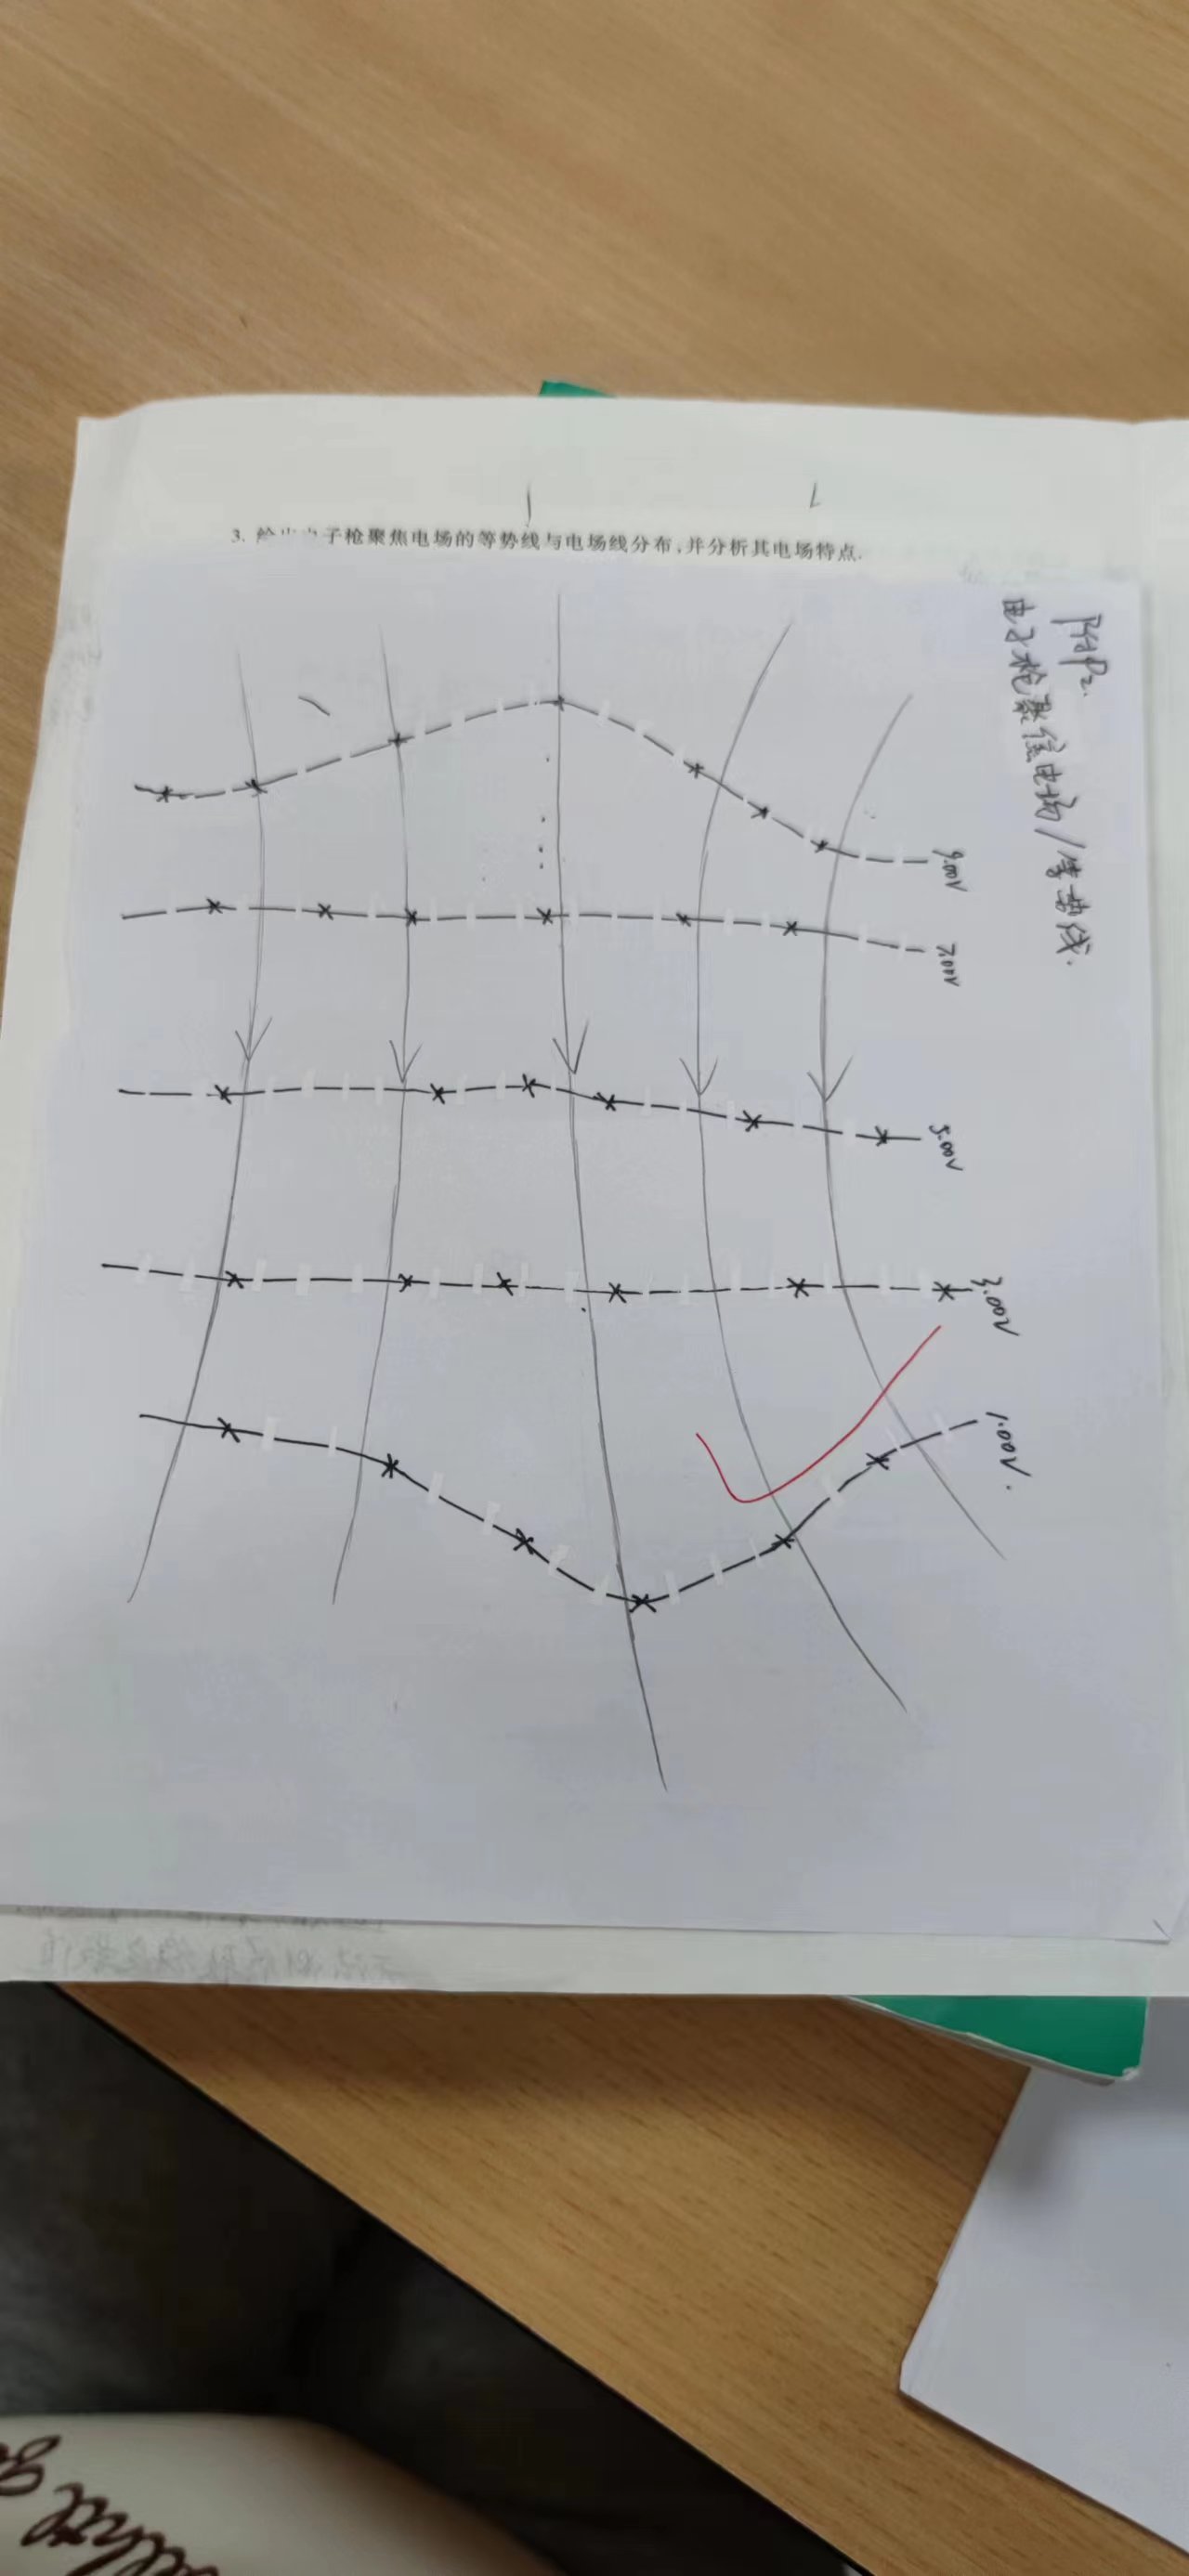 3. 绘出电子枪聚焦电场的等势线与电场线分布,并分析其电场特点.
附P2.
电子枪聚焦电场/等势线.
9.00V
7.00V
5.00V
3.00V
1.00V.